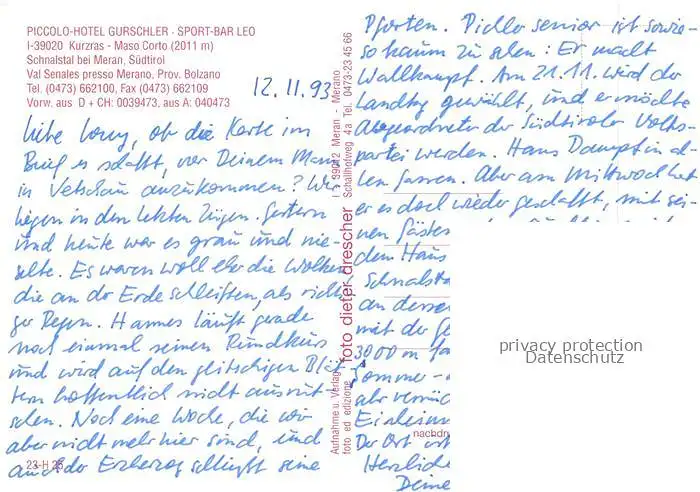 PICCOLO-HOTEL GURSCHLER · SPORT-BAR LEO
I-39020 Kurzras - Maso Corto (2011 m)
Schnalstal bei Meran, Südtirol
Val Senales presso Merano, Prov. Bolzano
Tel. (0473) 662100, Fax (0473) 662109
Vorw. aus D + CH: 0039473, aus A: 040473
12.11.93
Liebe Lony, ob die Karte im
Brief es schafft, vor Deinem Mann
in Vetschau anzukommen? Wir
liegen in den letzten Zügen. Gestern
und heute war es grau und nie-
selte. Es waren wohl eher die Wolken,
die an der Erde schleiften, als richti-
ger Regen. Hannes läuft gerade
noch einmal seinen Rundkurs
und wird auf den glitschigen Blät-
tern hoffentlich nicht ausrut-
schen. Noch eine Woche, die wir
aber nicht mehr hier sind, und
auch der Erzherzog schließt seine
23-H 25
Aufnahme u. Verlag
foto ed edizione
foto dieter drescher
I - 39012 Meran - Merano
Schallhofweg 4a Tel. 0473-23 45 66
Pforten. Pichlo senior ist sowie-
so kaum zu sehen: Er macht
Wahlkampf. Am 21.11. wird der
Landtag gewählt, und er möchte
Abgeordneter der Südtiroler Volks-
partei werden. Hans Dampf in al-
len Gassen. Aber am Mittwoch hat
er es doch wieder geschafft, mit sei-
nen Gästen
dem Haus
Schnalsta
an dessen
mit der
3000 m
Sommer-
Einheim
Der Ort
nachdr
Herzliche
Deine
privacy protection
Datenschutz